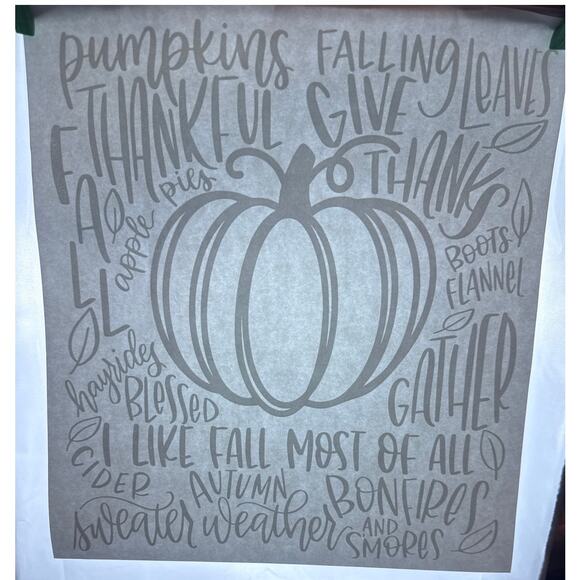 pumpkins
FALLING
LEAVES
THANKFUL
GIVE
THANKS
FALL
apple pies
BOOTS
FLANNEL
hayrides
BLESSED
GATHER
I LIKE FALL MOST OF ALL
CIDER
AUTUMN
BONFIRES
AND
S'MORES
sweater weather